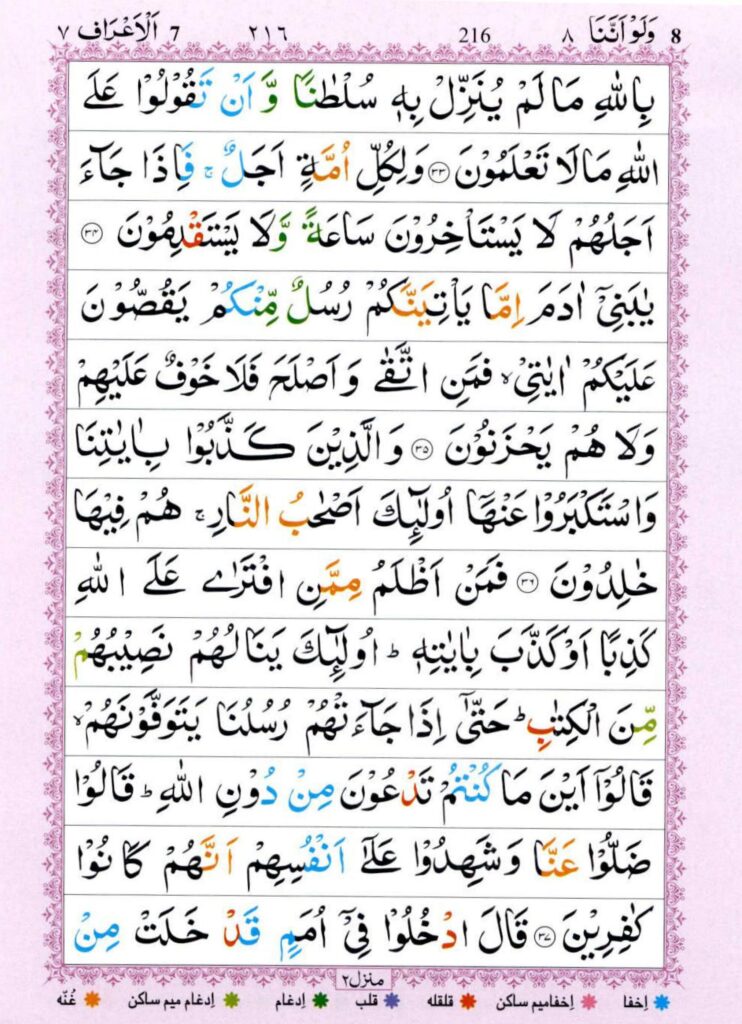 8 وَلَوْ اَنَّنَا ٨ 216 ٢١٦ 7 اَلْاَعْرَاف ٧
بِاللّٰهِ مَا لَمْ يُنَزِّلْ بِهٖ سُلْطٰنًا وَّ اَنْ تَقُوْلُوْا عَلَى
اللّٰهِ مَا لَا تَعْلَمُوْنَ ﴿٣٣﴾ وَلِكُلِّ اُمَّةٍ اَجَلٌ ۚ فَاِذَا جَآءَ
اَجَلُهُمْ لَا يَسْتَاْخِرُوْنَ سَاعَةً وَّلَا يَسْتَقْدِمُوْنَ ﴿٣٤﴾
يٰبَنِيْٓ اٰدَمَ اِمَّا يَاْتِيَنَّكُمْ رُسُلٌ مِّنْكُمْ يَقُصُّوْنَ
عَلَيْكُمْ اٰيٰتِيْ ۙ فَمَنِ اتَّقٰى وَاَصْلَحَ فَلَا خَوْفٌ عَلَيْهِمْ
وَلَا هُمْ يَحْزَنُوْنَ ﴿٣٥﴾ وَالَّذِيْنَ كَذَّبُوْا بِاٰيٰتِنَا
وَاسْتَكْبَرُوْا عَنْهَآ اُولٰٓئِكَ اَصْحٰبُ النَّارِ ۚ هُمْ فِيْهَا
خٰلِدُوْنَ ﴿٣٦﴾ فَمَنْ اَظْلَمُ مِمَّنِ افْتَرٰى عَلَى اللّٰهِ
كَذِبًا اَوْ كَذَّبَ بِاٰيٰتِهٖ ؕ اُولٰٓئِكَ يَنَالُهُمْ نَصِيْبُهُمْ
مِّنَ الْكِتٰبِ ؕ حَتّٰٓى اِذَا جَآءَتْهُمْ رُسُلُنَا يَتَوَفَّوْنَهُمْ ۙ
قَالُوْٓا اَيْنَ مَا كُنْتُمْ تَدْعُوْنَ مِنْ دُوْنِ اللّٰهِ ؕ قَالُوْا
ضَلُّوْا عَنَّا وَشَهِدُوْا عَلٰٓى اَنْفُسِهِمْ اَنَّهُمْ كَانُوْا
كٰفِرِيْنَ ﴿٣٧﴾ قَالَ ادْخُلُوْا فِيْٓ اُمَمٍ قَدْ خَلَتْ مِنْ
منزل ٢
اِخفا اِخفامیم ساکن قلقله قلب اِدغام اِدغام میم ساکن غُنّه